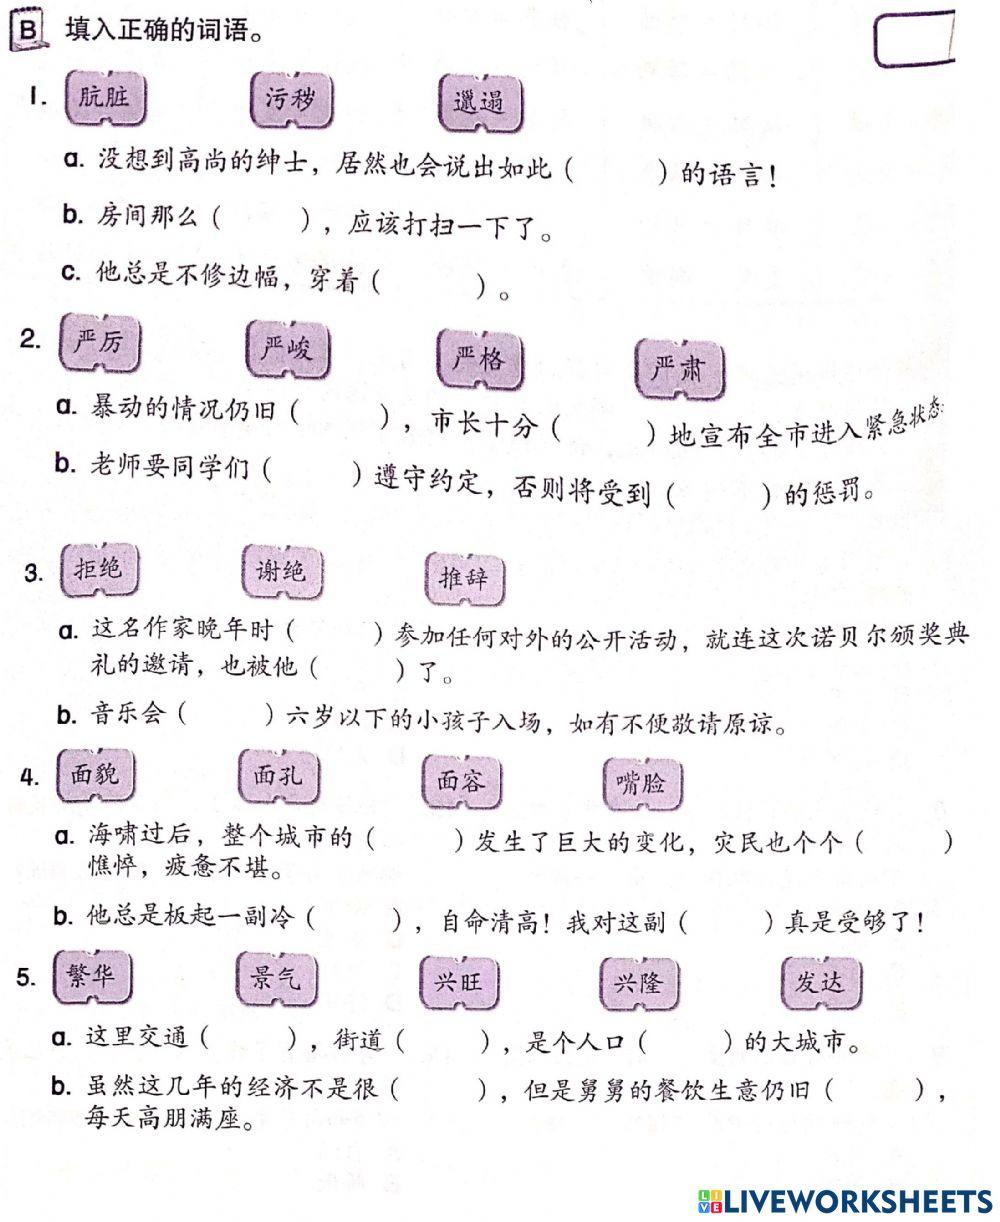 B 填入正确的词语。
1. 肮脏 污秽 邋遢
a. 没想到高尚的绅士，居然也会说出如此（ ）的语言！
b. 房间那么（ ），应该打扫一下了。
c. 他总是不修边幅，穿着（ ）。
2. 严厉 严峻 严格 严肃
a. 暴动的情况仍旧（ ），市长十分（ ）地宣布全市进入紧急状态。
b. 老师要同学们（ ）遵守约定，否则将受到（ ）的惩罚。
3. 拒绝 谢绝 推辞
a. 这名作家晚年时（ ）参加任何对外的公开活动，就连这次诺贝尔颁奖典
礼的邀请，也被他（ ）了。
b. 音乐会（ ）六岁以下的小孩子入场，如有不便敬请原谅。
4. 面貌 面孔 面容 嘴脸
a. 海啸过后，整个城市的（ ）发生了巨大的变化，灾民也个个（ ）
憔悴，疲惫不堪。
b. 他总是板起一副冷（ ），自命清高！我对这副（ ）真是受够了！
5. 繁华 景气 兴旺 兴隆 发达
a. 这里交通（ ），街道（ ），是个人口（ ）的大城市。
b. 虽然这几年的经济不是很（ ），但是舅舅的餐饮生意仍旧（ ），
每天高朋满座。
LIVE LIVEWORKSHEETS